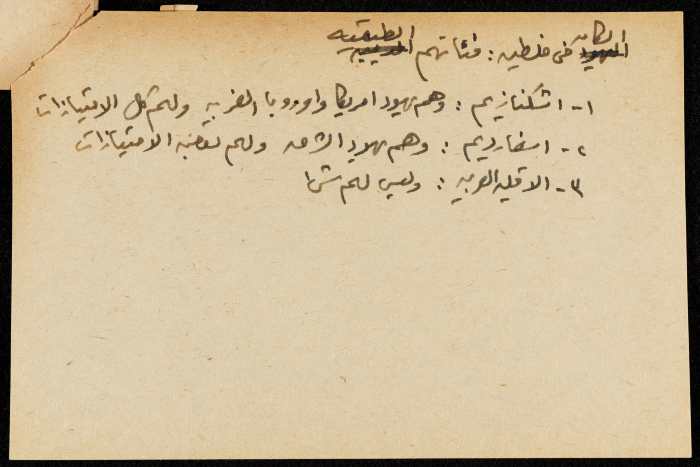 السكان في فلسطين : فئاتهم الطبقية
١- اشكنازيم : وهم يهود امريكا واوروبا الغربية ولهم كل الامتيازات
٢- اسفارديم : وهم يهود الشرق ولهم بعض الامتيازات
٣- الاقلية العربية : وليس لهم شيئا